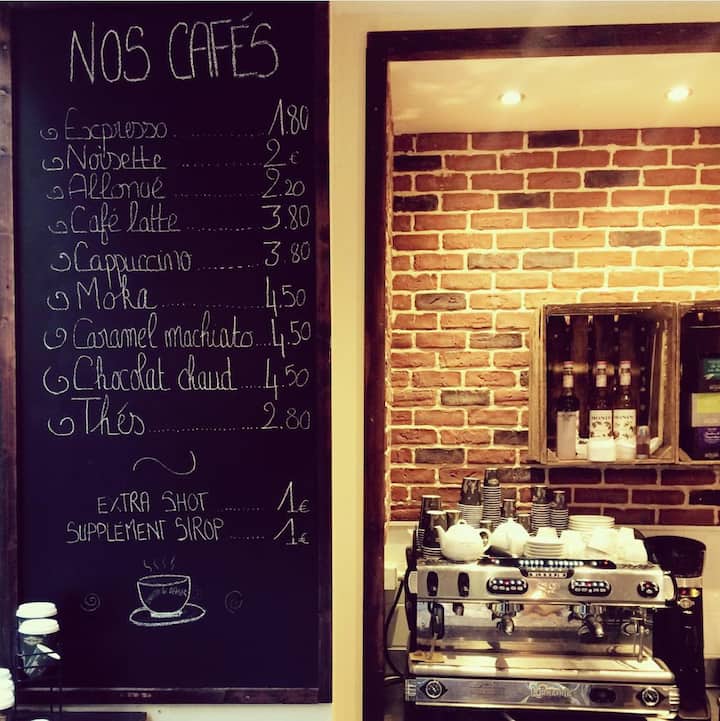 NOS CAFÉS
Expresso ............ 1.80
Noisette ............ 2€
Allongé ............ 2.20
Café latte ............ 3.80
Cappuccino ............ 3.80
Moka ............ 4.50
Caramel machiato .... 4.50
Chocolat chaud ..... 4.50
Thés ............ 2.80
EXTRA SHOT ......... 1€
SUPPLÉMENT SIROP ........ 1€
MONIN
MONIN